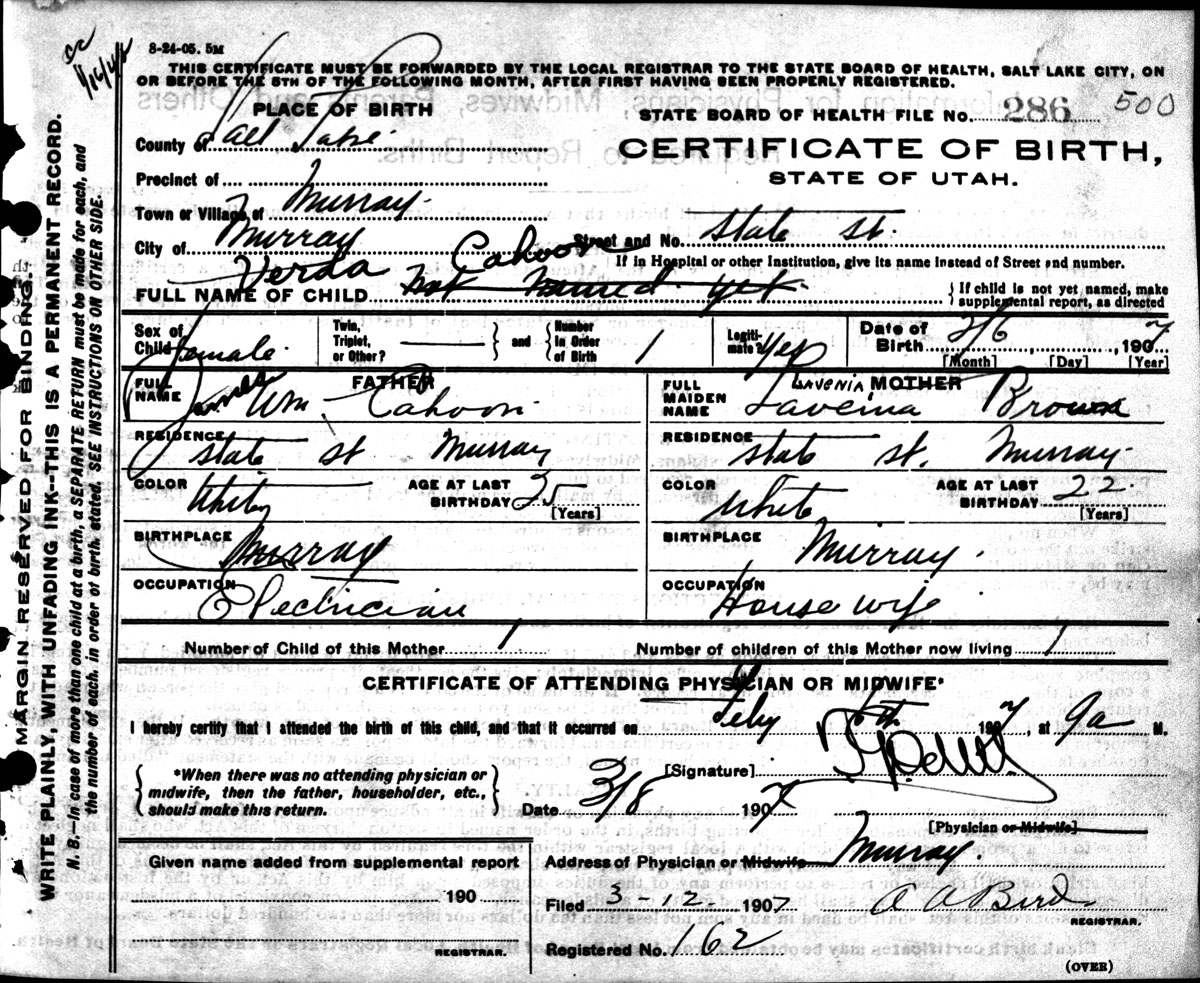 8-24-05. 5M
THIS CERTIFICATE MUST BE FORWARDED BY THE LOCAL REGISTRAR TO THE STATE BOARD OF HEALTH, SALT LAKE CITY, ON
OR BEFORE THE 5TH OF THE FOLLOWING MONTH, AFTER FIRST HAVING BEEN PROPERLY REGISTERED.
PLACE OF BIRTH
STATE BOARD OF HEALTH FILE No. 286 500
County of Salt Lake
CERTIFICATE OF BIRTH,
STATE OF UTAH.
Precinct of
Town or Village of Murray
City of Murray Street and No. State St.
If in Hospital or other Institution, give its name instead of Street and number.
Verda Cahoon
FULL NAME OF CHILD Not Named yet
{ If child is not yet named, make
supplemental report, as directed
Sex of Child female
Twin, Triplet, or Other? { and } Number In Order of Birth 1
Legitimate? Yes
Date of Birth 2/6, 1907
[Month] [Day] [Year]
FATHER
FULL NAME James Wm Cahoon
RESIDENCE State St Murray
COLOR White AGE AT LAST BIRTHDAY 25 [Years]
BIRTHPLACE Murray
OCCUPATION Electrician
MOTHER
LAVENIA
FULL MAIDEN NAME Laveina Brown
RESIDENCE State St. Murray
COLOR White AGE AT LAST BIRTHDAY 22. [Years]
BIRTHPLACE Murray.
OCCUPATION House wife
Number of Child of this Mother 1 Number of children of this Mother now living 1
CERTIFICATE OF ATTENDING PHYSICIAN OR MIDWIFE*
I hereby certify that I attended the birth of this child, and that it occurred on Feby 6th 1907, at 9a M.
{ *When there was no attending physician or
midwife, then the father, householder, etc.,
should make this return. }
[Signature]
Date 3/8 1907
[Physician or Midwife]
Given name added from supplemental report
190
REGISTRAR.
Address of Physician or Midwife Murray.
Filed 3-12. 1907 A A Bird
REGISTRAR.
Registered No. 162
(OVER)
MARGIN RESERVED FOR BINDING.
WRITE PLAINLY, WITH UNFADING INK--THIS IS A PERMANENT RECORD.
N. B.--In case of more than one child at a birth, a SEPARATE RETURN must be made for each, and
the number of each, in order of birth, stated. SEE INSTRUCTIONS ON OTHER SIDE.